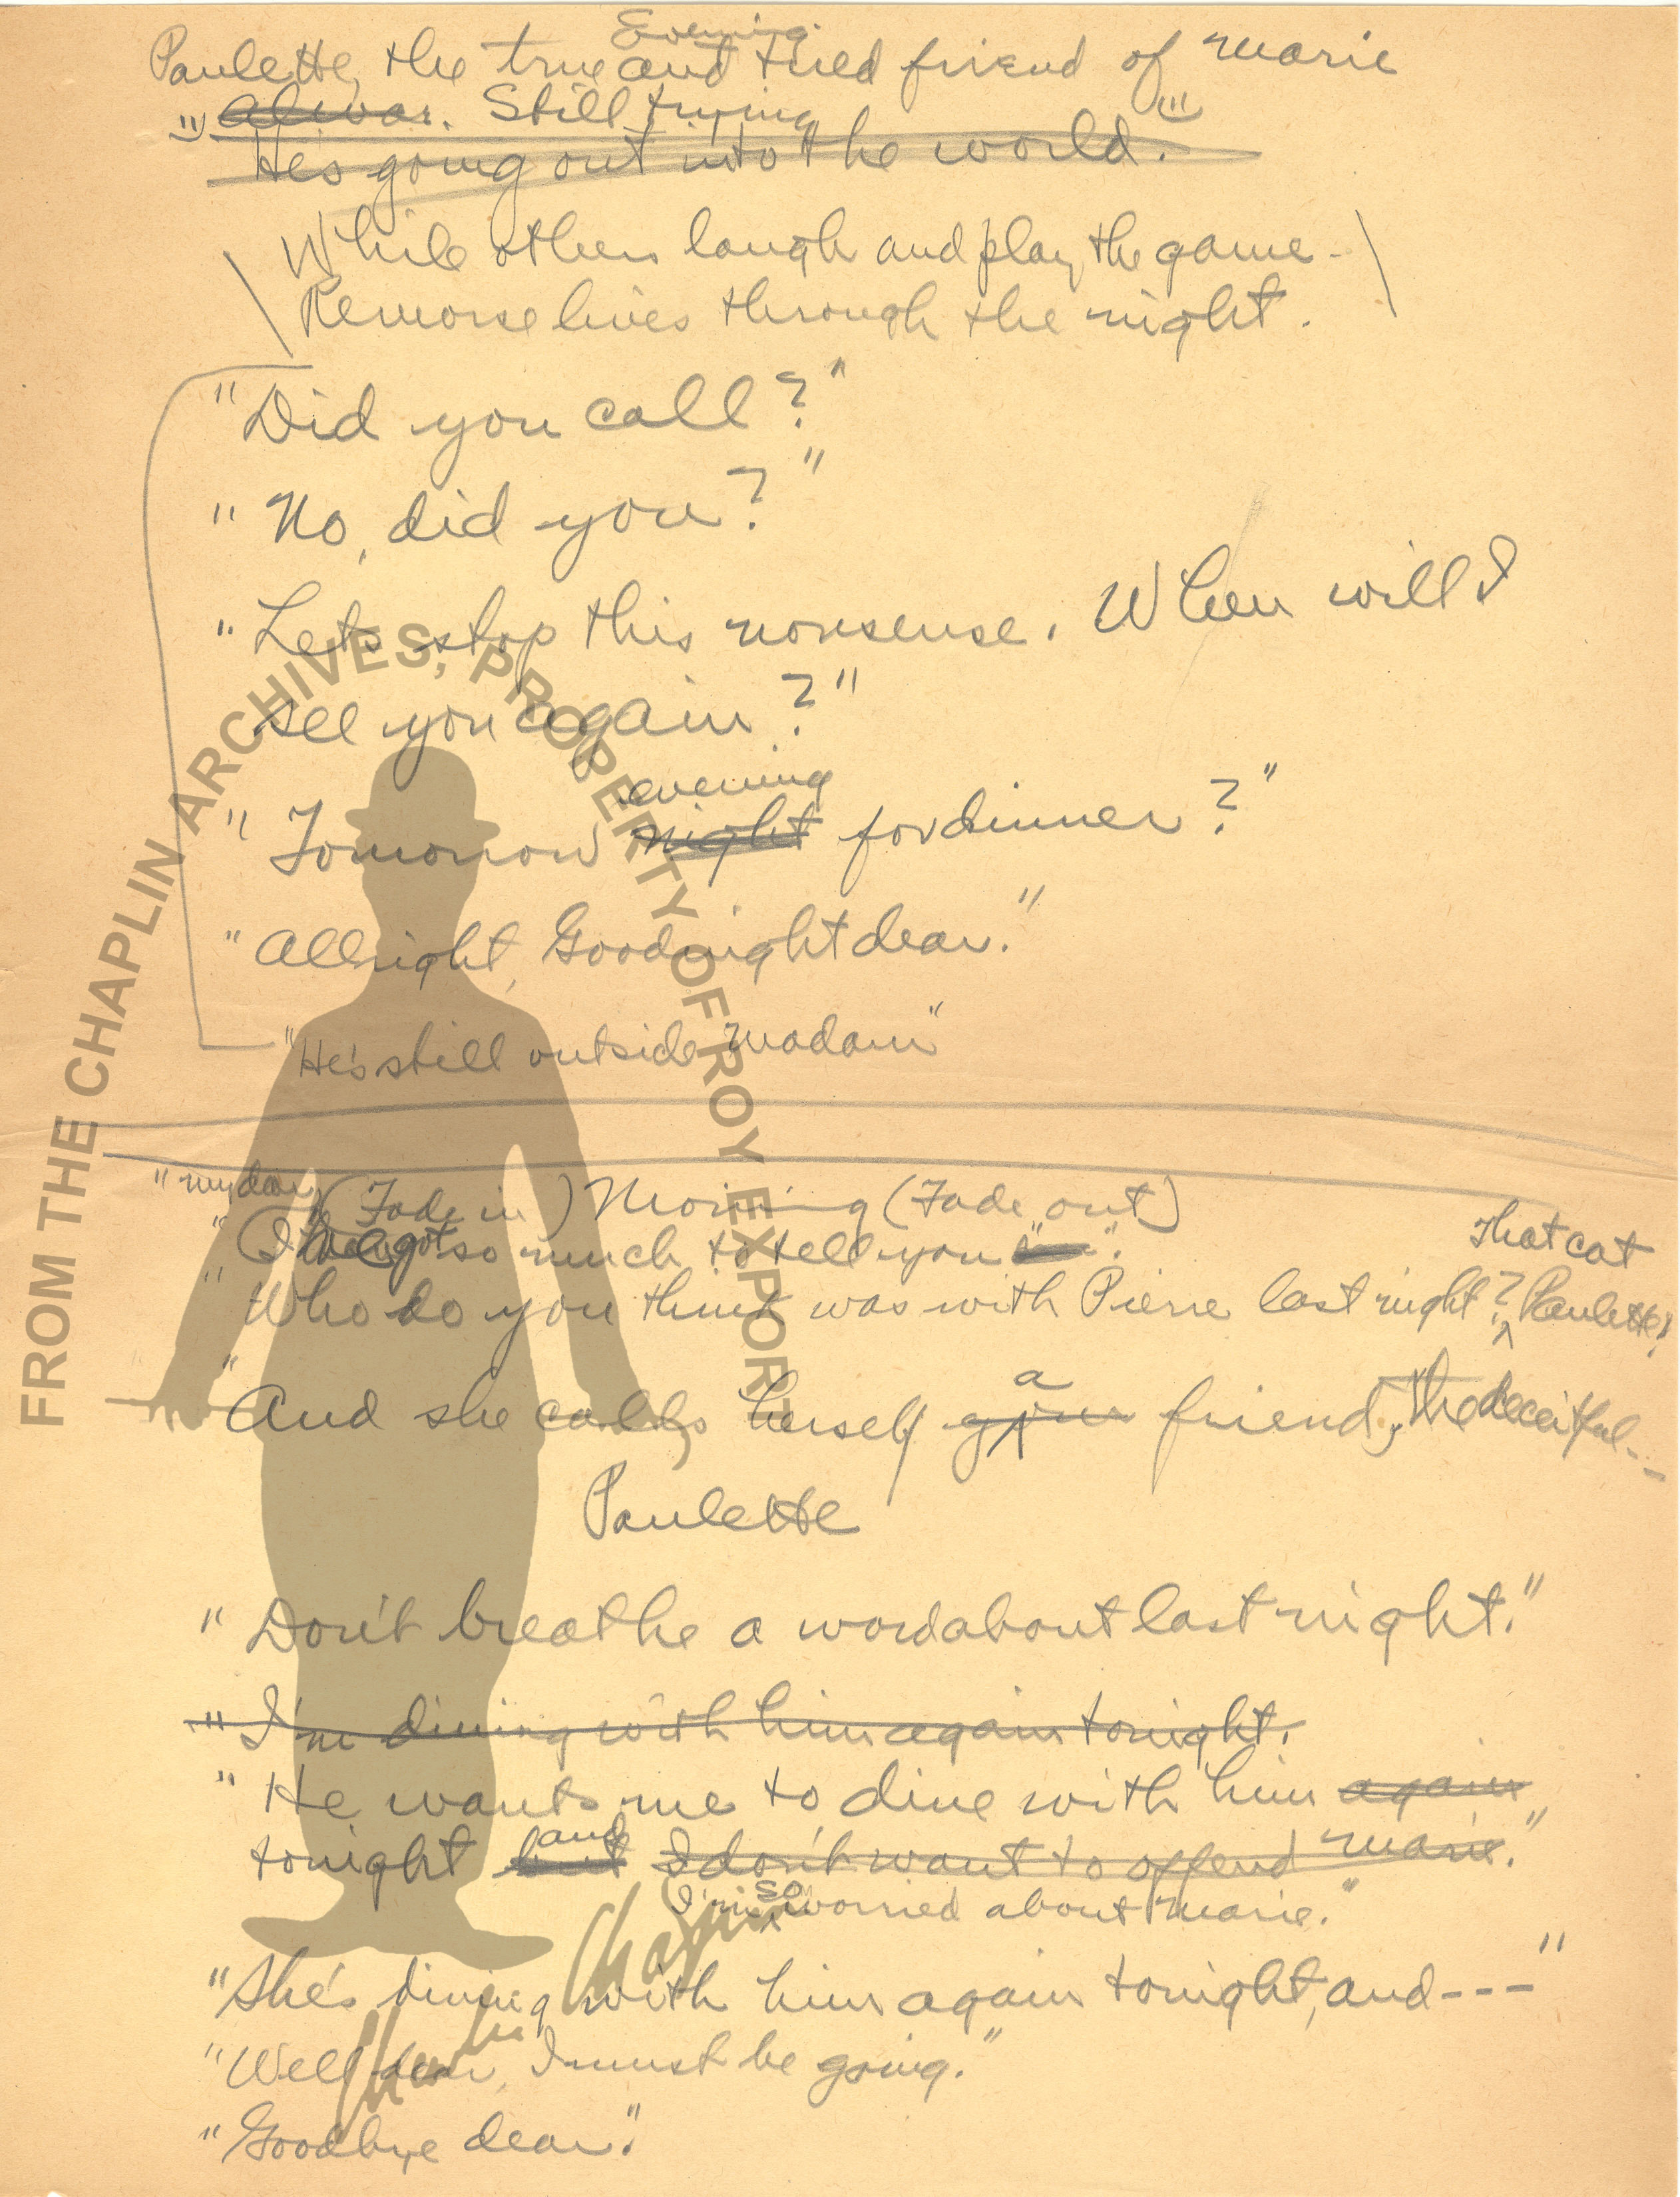 Evening.
Paulette, the true and tried friend of Marie
" alivar. Still trying "
He's going out into the world.
While others laugh and play the game -
Remorse lives through the night.
"Did you call?"
"No, did you?"
"Lets stop this nonsense. When will I
see you again?"
evening
"Tomorrow night for dinner?"
"Allright, Goodnight dear."
"He's still outside Madam"
"my dear, (Fade in) Morning (Fade out)
"I've got so much to tell you".
That cat
"Who do you think was with Pierre last night? Paulette!
a
"And she calls herself your friend, the deceitful---
Paulette
"Don't breathe a word about last night."
"I'm dining with him again tonight.
"He wants me to dine with him again
and
tonight but I don't want to offend Marie."
so
I'm worried about Marie."
"She's dining with him again tonight, and---"
"Well dear, I must be going."
"Goodbye dear".
FROM THE CHAPLIN ARCHIVES, PROPERTY OF ROY EXPORT
Charlie Chaplin